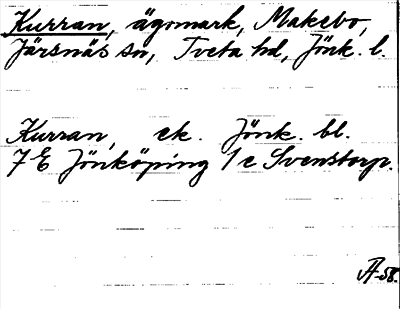 Kurran, ägomark, Makebo,
Järsnäs sn, Tveta hd, Jönk. l.
Kurran, ek. Jönk. bl.
7 E Jönköping 1 e Svenstorp.
Å-58.